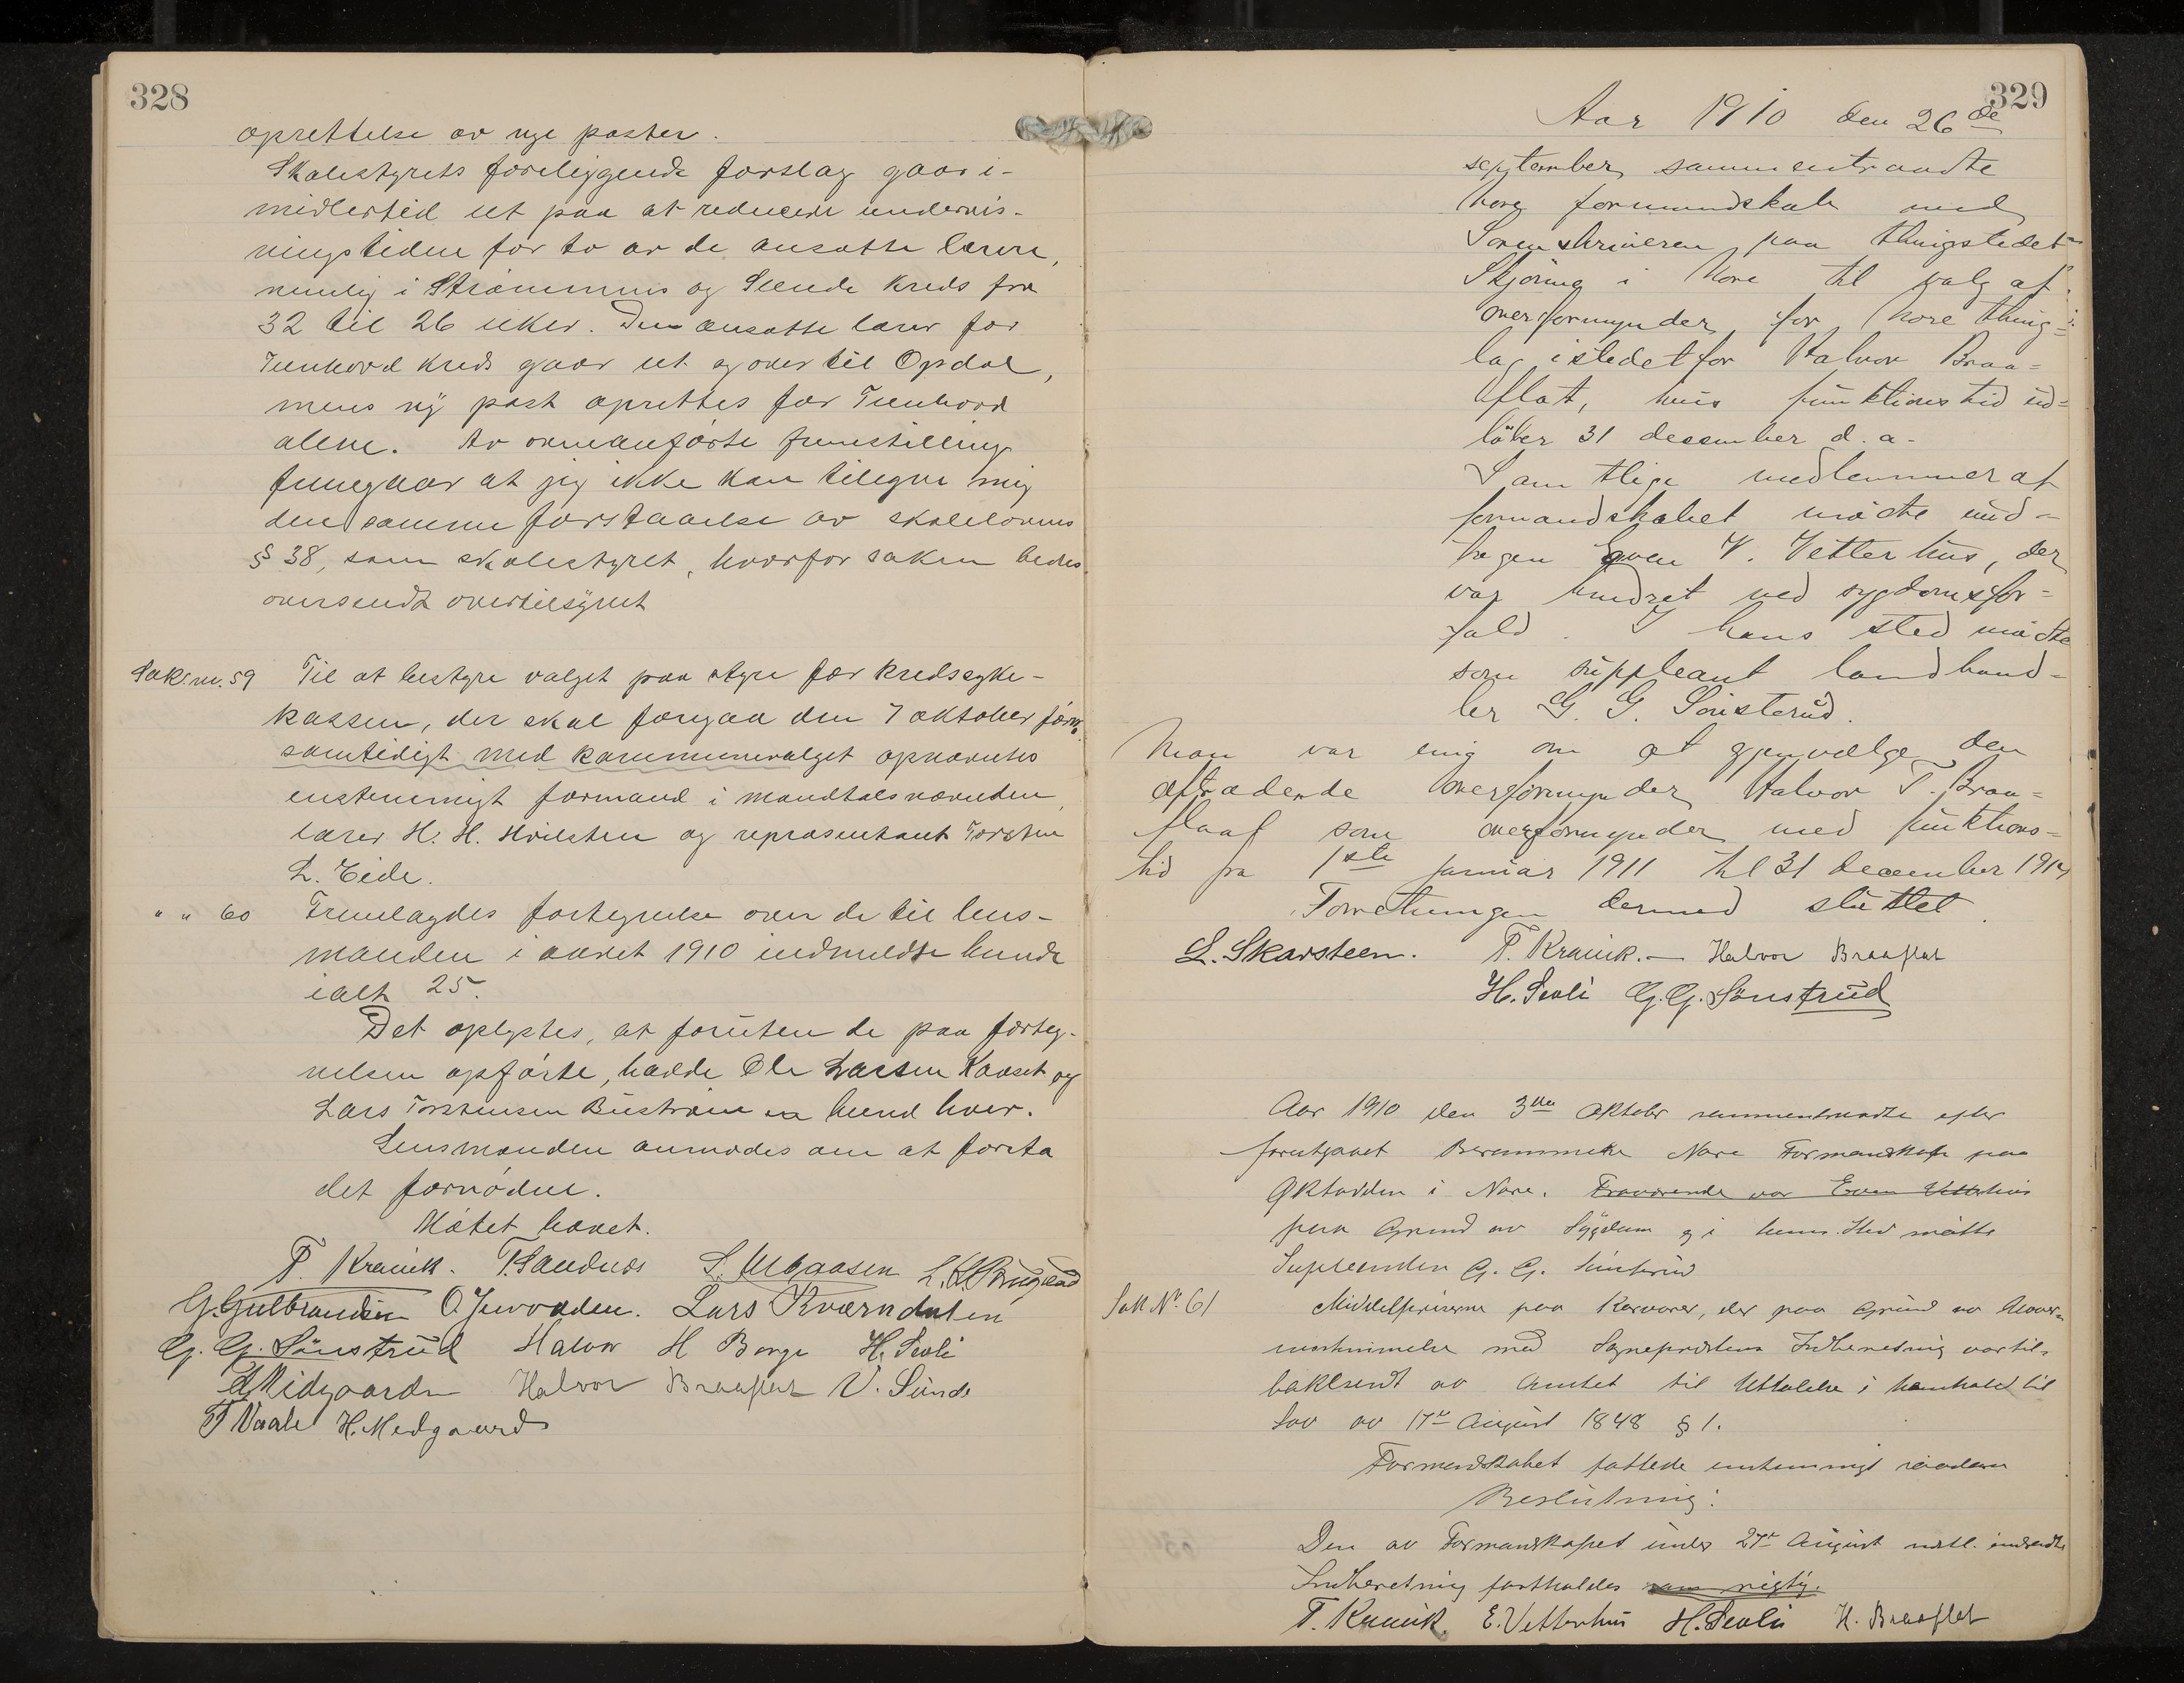 328
oprettelse av nye poster.
Skolestyrets foreliggende forslag gaar i-
midlertid ut paa at reducere undervis-
ningstiden for to av de ansatte lærere,
nemlig i Strømmus og Seende kreds fra
32 til 26 uker. Den ansatte lærer for
Tunhovd kreds gaar ut og over til Opdal,
mens ny post oprettes for Tunhovd
alene. Av ovenanførte fremstilling
fremgaar at jeg ikke kan tilegne mig
den samme forstaaelse av skolelovens
§ 38, som skolestyret, hvorfor saken bedes
oversendt overtilsynet
Sak nr. 59 Til at bestyre valget paa styre for kredssyke-
kassen, der skal foregaa den 7 oktober førstk.
samtidigt med kommunevalget opnævntes
enstemmigt formand i mandtalsnævnden,
lærer H. H. Hvilsten og repræsentant Torsten
L. Eide.
" " 60 Fremlagdes fortegnelse over de til lens-
manden i aaret 1910 indmeldte hunde
ialt 25.
Det oplystes, at foruten de paa forteg-
nelsen opførte, hadde Ole Larsen Kaaset og
Lars Torstensen Bustrøm en hund hver.
Lensmanden anmodes om at foreta
det fornødne.
Møtet hævet.
T. Kravik. T. Sandnes
G. Gulbrandsen O. Juvodden. Lars Kværndalen
G. G. Sønstrud Halvor H Berge H. Seoli
Midgaarden Halvor Braaflat V. Sunde
T Vaale H. Medgaard
329
Aar 1910 den 26de
september sammentraadte
Nore formandskab med
Sorenskriveren paa thingstedet
Skjønne i Nore til valg af
overformynder for Nore thing=
lag istedetfor Halvor Braa=
flat, hvis funktionstid ud=
løber 31 desember d. a.
Samtlige medlemmer af
formandskabet mødte und=
tagen Even V. Vetterhus, der
var hindret ved sygdomsfor=
fald. I hans sted mødte
som suppleant landhand=
ler G. G. Sønsterud.
Man var enig om at gjenvælge den
aftrædende overformynder Halvor T. Braa=
flaat som overformynder med funktions=
tid fra 1ste januar 1911 til 31 december 1914
Forretningen dermed sluttet.
L. Skarsteen. T. Kravik. — Halvor Braaflat
H. Seoli G. G. Sønstrud
Aar 1910 den 3die Oktobr sammentraadte efter
forutgaaet Berammelse Nore Formandskap paa
i Nore. Fraværende var Even Vetterhus
paa Grund av Sygdom og i hans Sted møtte
Supleanten G. G. Sønsterud
Sak No. 61 Middelpriserne paa Kornvarer, der paa Grund av Uover-
enstemmelse med Sogneprestens Indberetning var til-
baksendt av Amtet til Uttalelse i henhold til
Lov av 17de August 1848 § 1.
Formandskabet fattede enstemmigt saadan
Beslutning:
Den av Formandskapet under 27de August indsendte
Indberetning fastholdes som rigtig.
T. Kravik. E. Vetterhus H. Seoli H. Braaflat